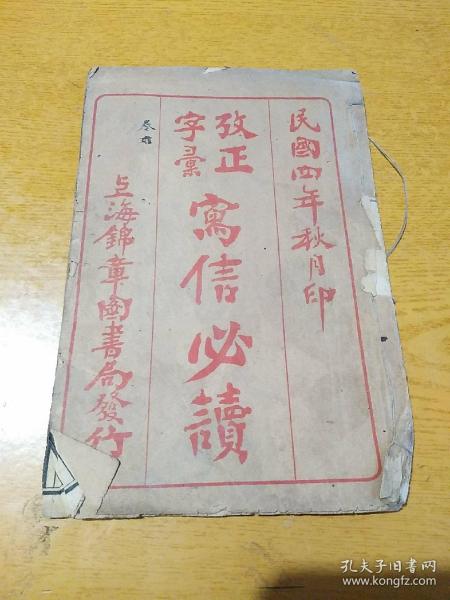 民國四年秋月印
改正
字彙
寫信必讀
上海錦章圖書局發行
孔夫子旧书网
www.kongfz.com